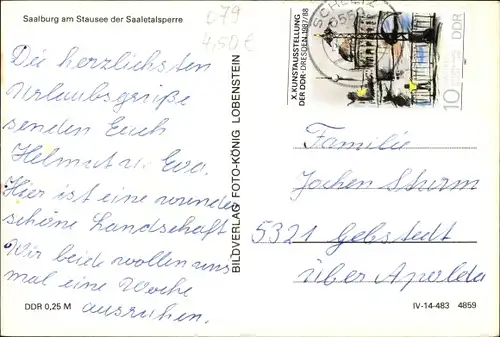 Saalburg am Stausee der Saaletalsperre
079
4,50 €
Die herzlichsten
Urlaubsgrüße
senden Euch
Helmut u. Eva.
Hier ist eine wunder
schöne Landschaft
Wir beide wollen uns
mal eine Woche
ausruhen.
DDR 0,25 M
BILDVERLAG FOTO-KÖNIG LOBENSTEIN
X. KUNSTAUSSTELLUNG
DER DDR · DRESDEN 1987/88
SCHLEIZ
10
DDR
Familie
Jochen Sturm
5321 Gebstedt
über Apolda
IV-14-483 4859